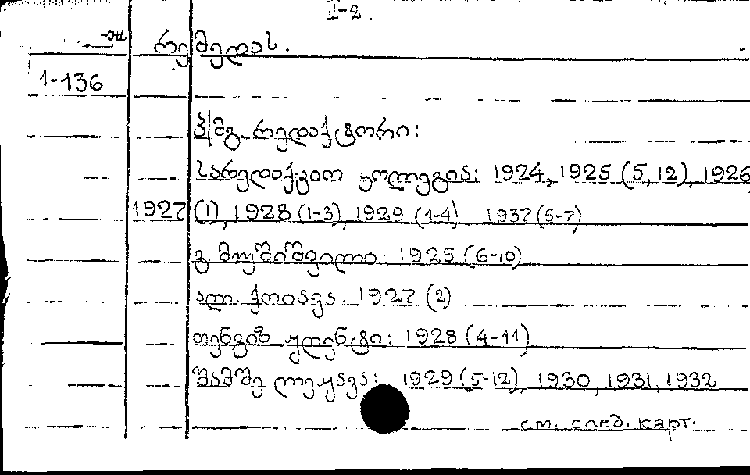 1-2.
რემედას.
1-136
პ/მგ. რედაქტორი:
სარედაქციო კოლეგია: 1924, 1925 (5,12), 1926,
1927 (1), 1928 (1-3), 1929 (1-4) 1937 (5-7)
გ. მუშიშვილი: 1925 (6-10)
ალ. ქოიავა. 1927 (2)
თენგიზ ჟღენტი: 1928 (4-11)
შამშე ლეჟავა: 1929 (5-12), 1930, 1931, 1932
см. след. карт.